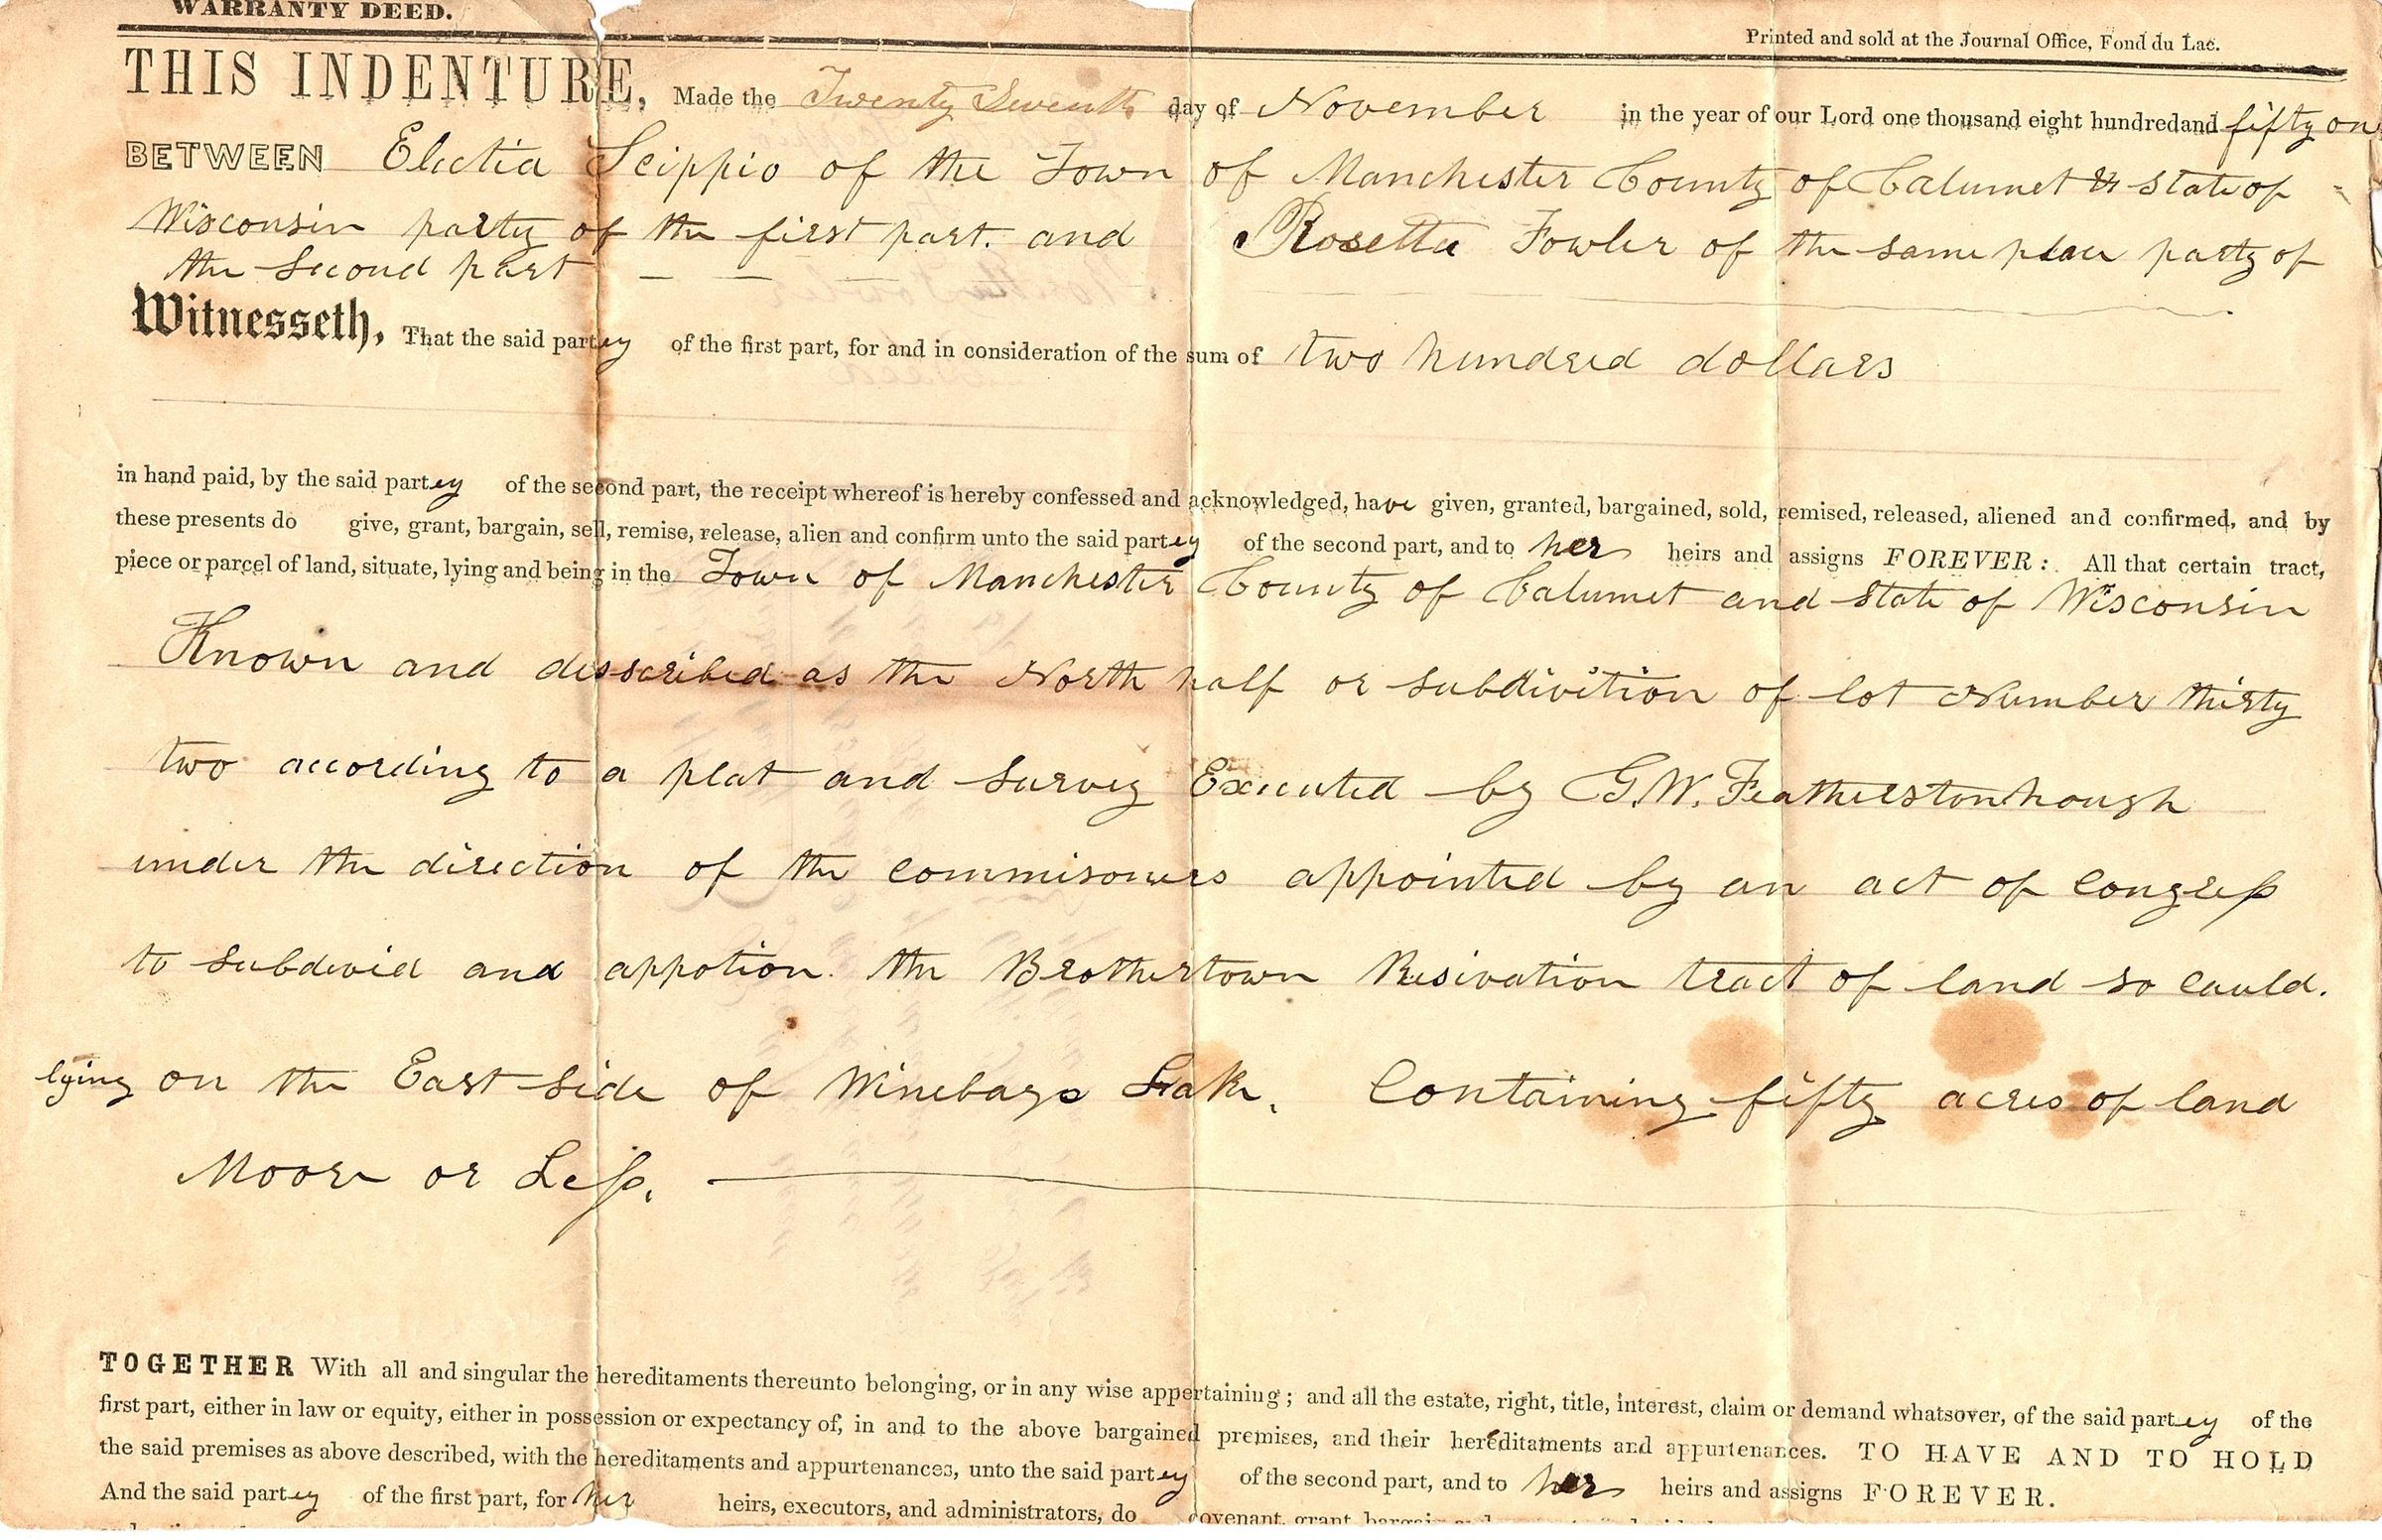 WARRANTY DEED.
Printed and sold at the Journal Office, Fond du Lac.
THIS INDENTURE, Made the Twenty Seventh day of November in the year of our Lord one thousand eight hundred and fifty one
BETWEEN Electia Scippio of the Town of Manchester County of Calumet & State of
Wisconsin party of the first part. and Rosetta Fowler of the same place party of
the Second part
Witnesseth, That the said partey of the first part, for and in consideration of the sum of two hundred dollars
in hand paid, by the said partey of the second part, the receipt whereof is hereby confessed and acknowledged, have given, granted, bargained, sold, remised, released, aliened and confirmed, and by
these presents do give, grant, bargain, sell, remise, release, alien and confirm unto the said partey of the second part, and to her heirs and assigns FOREVER: All that certain tract,
piece or parcel of land, situate, lying and being in the Town of Manchester County of Calumet and State of Wisconsin
Known and desscribed as the North half or subdivition of lot Number thirty
two according to a plat and survey Executed by G.W. Featherstonhough
under the direction of the commisoners appointed by an act of Congress
to subdevid and appotion. the Brothertown Resivation tract of land so could.
lying on the East side of Winebago Lake. Containing fifty acres of land
Moore or Less.
TOGETHER With all and singular the hereditaments thereunto belonging, or in any wise appertaining; and all the estate, right, title, interest, claim or demand whatsover, of the said partey of the
first part, either in law or equity, either in possession or expectancy of, in and to the above bargained premises, and their hereditaments and appurtenances. TO HAVE AND TO HOLD
the said premises as above described, with the hereditaments and appurtenances, unto the said partey of the second part, and to her heirs and assigns FOREVER.
And the said partey of the first part, for her heirs, executors, and administrators, do covenant, grant, bargain